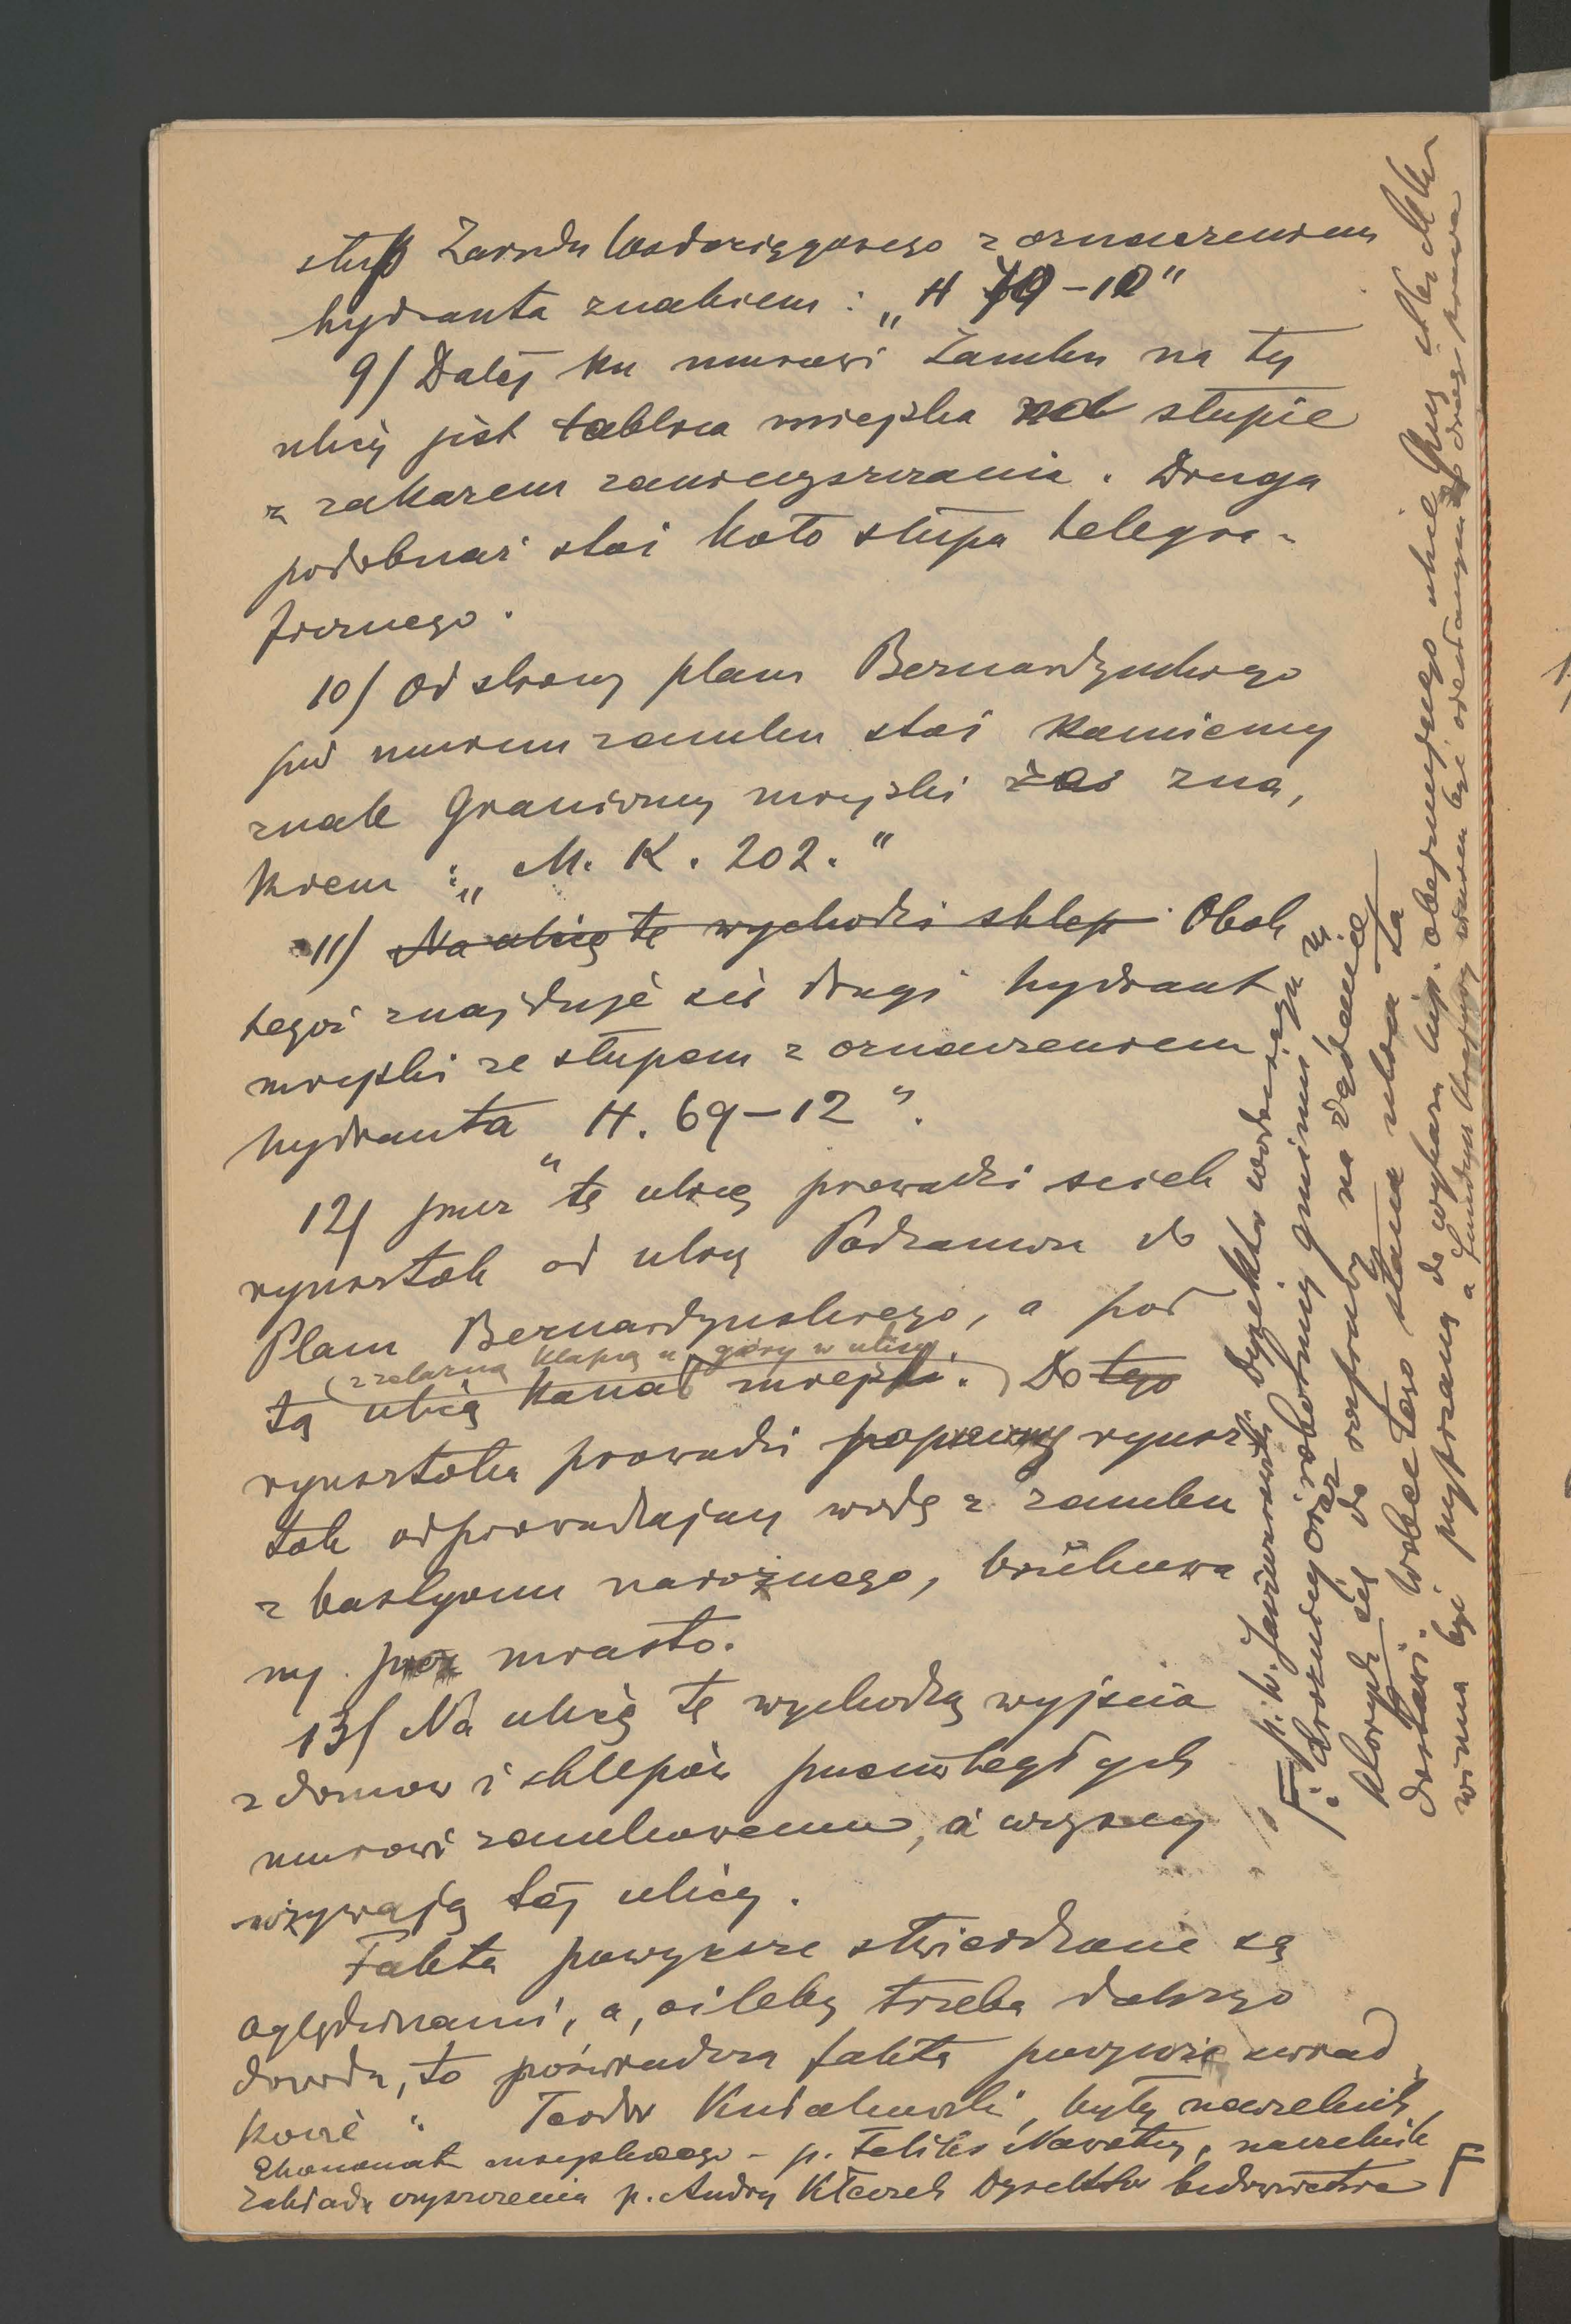 słup Zakładu Wodociągowego z oznaczeniem
hydranta znakiem: „H 70–12"
9/ Dalej ku murowi Zamku na tej
ulicy jest tablica miejska na słupie
z zakazem zanieczyszczania. Druga
podobnaż stoi koło słupa telegra-
ficznego.
10/ Od strony placu Bernardyńskiego
pod murem zamku stoi kamienny
znak graniczny miejski ze zna,
kiem : „M. K. 202."
11/ Na ulicę tę wychodzi sklep. Obok
tegoż znajduje się drugi hydrant
miejski ze słupem z oznaczeniem
hydranta „H. 69–12".
12/ przez tę ulicę prowadzi ściek
rynsztok od ulicy Podzamcze do
Placu Bernardyńskiego, a pod
(z żelazną klapą u góry w ulicy)
tą ulicą kanał miejski. Do tego
rynsztoka prowadzi rynsz-
tok odprowadzający wodę z zamku
z bastyonu narożnego, brukowa
ny przez miasto.
13/ Na ulicę tę wychodzą wyjścia
z domów i sklepów przeciwległych
murowi zamkowemu, a wszyscy
używają tej ulicy.
Fakta powyższe stwierdzone są
oględzinami, a, oileby trzeba dalszego
dowodu, to poświadczą fakta powyższe świad
kowie : Teodor Kułakowski, były naczelnik
Ekonomatu miejskiego – p. Feliks Nawotny, naczelnik
Zakładu czyszczenia p. Andrzej Kłeczek Dyrektor budownictwa
F p. h. Dyrektor wodociągu
i drożnicy oraz robotnicy gminni z
których się do rozprawy na żądanie
dostawi. Wobec tego stanu ulica ta
winna być wpisaną do wykazu hip. obejmującego ulice Gm. M. Kr.
a Fundusz Krajowy winien być oddalonym z drogi prawa